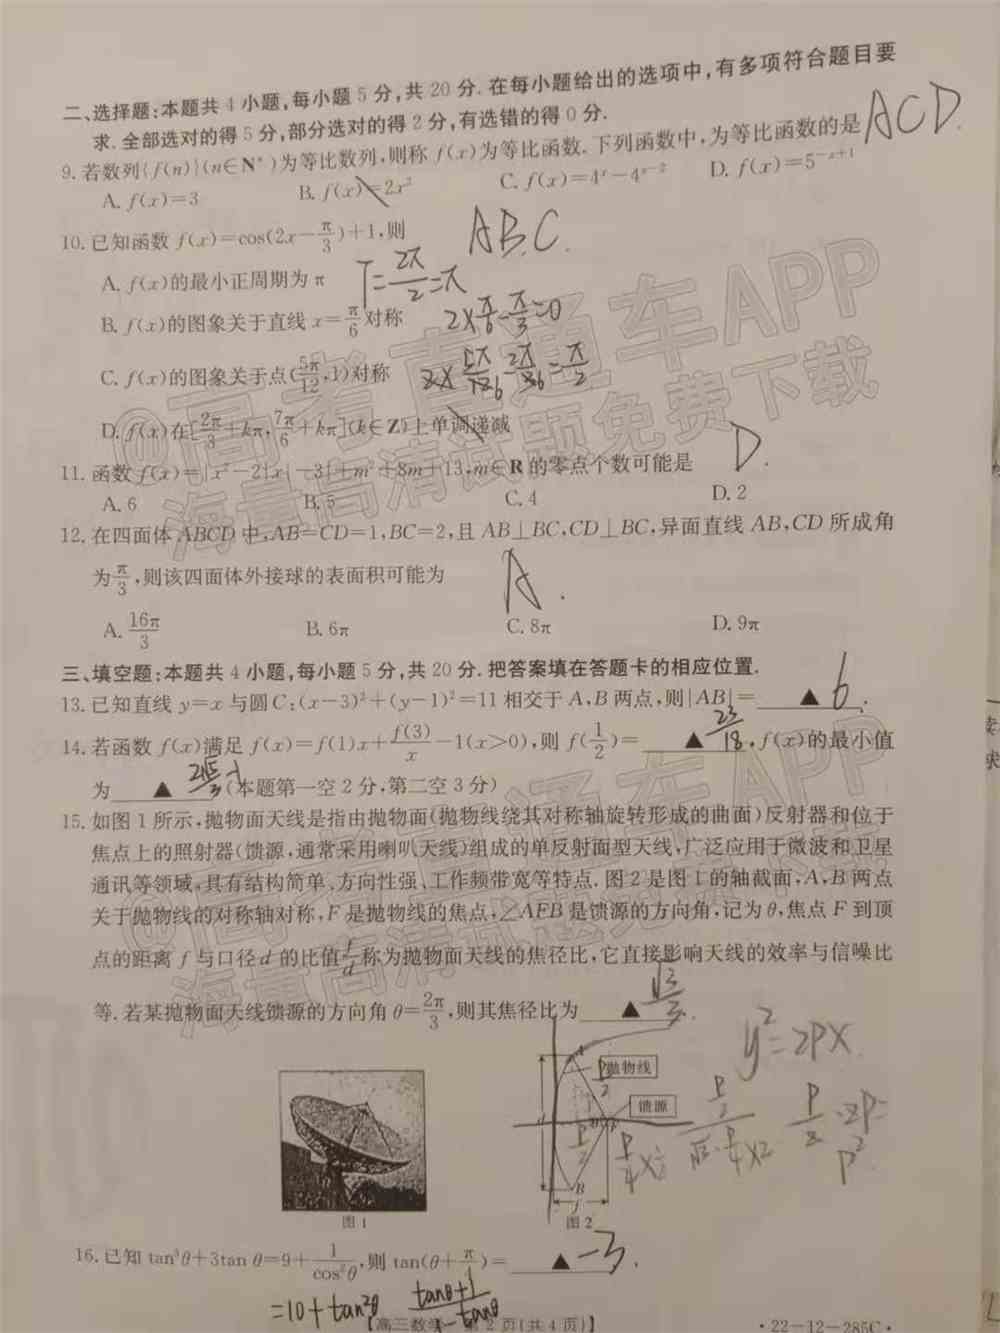 二、选择题:本题共4小题,每小题5分,共20分.在每小题给出的选项中,有多项符合题目要
求.全部选对的得5分,部分选对的得2分,有选错的得0分.
9.若数列{f(n)}(n∈N*)为等比数列,则称f(x)为等比函数.下列函数中,为等比函数的是 ACD.
A. f(x)=3 B. f(x)=2x² C. f(x)=4ˣ-4ˣ⁻² D. f(x)=5⁻ˣ⁺¹
10.已知函数f(x)=cos(2x-π/3)+1,则 ABC.
A. f(x)的最小正周期为π T=2π/2=π
B. f(x)的图象关于直线x=π/6对称 2×π/6-π/3=0
C. f(x)的图象关于点(5π/12,1)对称 2×5π/12 6-2π/36=π/2
D. f(x)在[2π/3+kπ,7π/6+kπ](k∈Z)上单调递减
11.函数f(x)=|x²-2|x|-3|+m²+8m+13,m∈R的零点个数可能是 D.
A. 6 B. 5 C. 4 D. 2
12.在四面体ABCD中,AB=CD=1,BC=2,且AB⊥BC,CD⊥BC,异面直线AB,CD所成角
为π/3,则该四面体外接球的表面积可能为 A.
A. 16π/3 B. 6π C. 8π D. 9π
三、填空题:本题共4小题,每小题5分,共20分.把答案填在答题卡的相应位置.
13.已知直线y=x与圆C:(x-3)²+(y-1)²=11相交于A,B两点,则|AB|=▲ 6.
14.若函数f(x)满足f(x)=f(1)x+f(3)/x-1(x>0),则f(1/2)=▲ 23/18,f(x)的最小值
为▲ 2√5/3-1.(本题第一空2分,第二空3分)
15.如图1所示,抛物面天线是指由抛物面(抛物线绕其对称轴旋转形成的曲面)反射器和位于
焦点上的照射器(馈源,通常采用喇叭天线)组成的单反射面型天线,广泛应用于微波和卫星
通讯等领域,具有结构简单、方向性强、工作频带宽等特点.图2是图1的轴截面,A,B两点
关于抛物线的对称轴对称,F是抛物线的焦点,∠AFB是馈源的方向角,记为θ,焦点F到顶
点的距离f与口径d的比值f/d称为抛物面天线的焦径比,它直接影响天线的效率与信噪比
等.若某抛物面天线馈源的方向角θ=2π/3,则其焦径比为▲ √3/3.
y²=2px
抛物线
馈源
B
f
图1 图2
16.已知tan³θ+3tanθ=9+1/cos²θ,则tan(θ+π/4)=▲ -3.
=10+tan²θ tanθ+1/1-tanθ
【高三数学 第2页(共4页)】 ·22-12-285C·
@高考直通车APP
海量高清试题免费下载
@高考直通车APP
海量高清试题免费下载